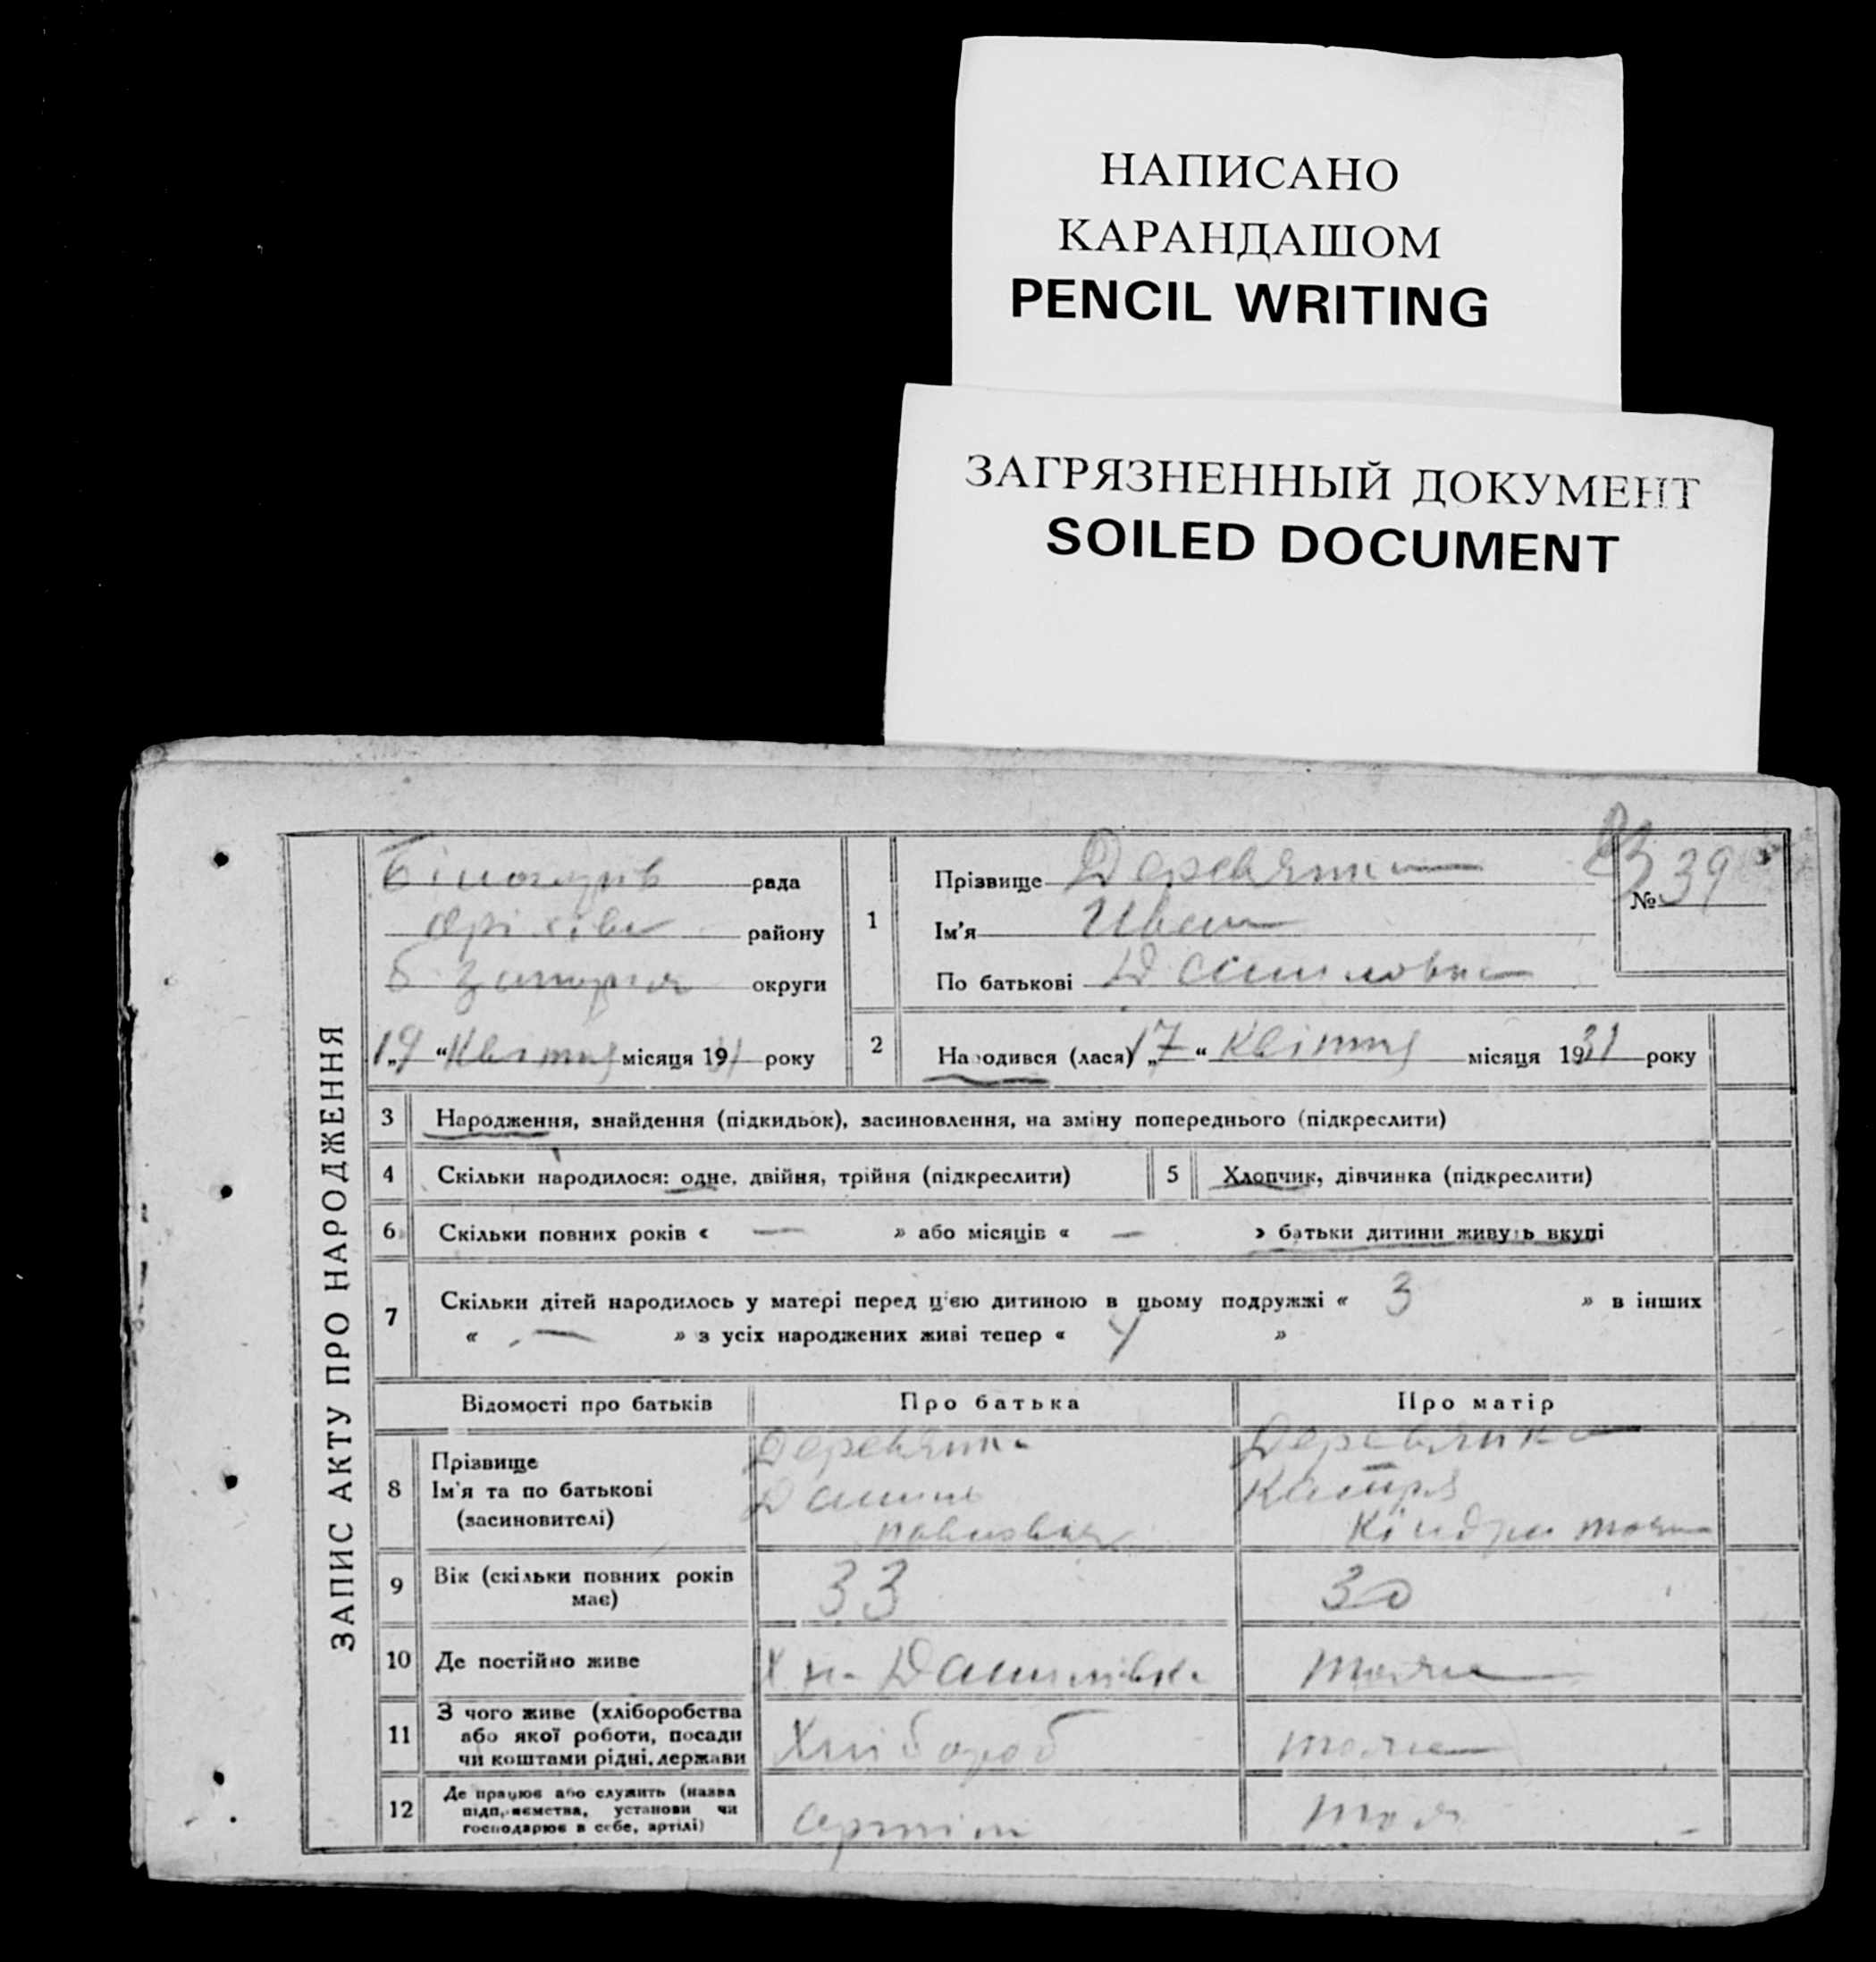 НАПИСАНО
КАРАНДАШОМ
PENCIL WRITING
ЗАГРЯЗНЕННЫЙ ДОКУМЕНТ
SOILED DOCUMENT
ЗАПИС АКТУ ПРО НАРОДЖЕННЯ
рада
району
округи
„19“ Квітня місяця 1931 року
1
Прізвище Деревянка
Ім'я Иван
По батькові Данилович
№ 39
2
Народився (лася) „17“ Квітня місяця 1931 року
3 Народження, знайдення (підкидьок), засиновлення, на зміну попереднього (підкреслити)
4 Скільки народилося: одне, двійня, трійня (підкреслити)
5 Хлопчик, дівчинка (підкреслити)
6 Скільки повних років « — » або місяців « — » батьки дитини живуть вкупі
7 Скільки дітей народилось у матері перед цією дитиною в цьому подружжі « 3 » в інших
« — » з усіх народжених живі тепер « 4 »
Відомості про батьків Про батька Про матір
8 Прізвище
Ім'я та по батькові
(засиновителі)
Деревянка
Данило
Деревянка
Катря
Кіндратовна
9 Вік (скільки повних років
має)
33 30
10 Де постійно живе Х. Н- Данилівка тоже
11 З чого живе (хліборобства
або якої роботи, посади
чи коштами рідні, держави
Хлібороб тоже
12 Де працює або служить (назва
підприємства, установи чи
господарює в себе, артілі)
артіль